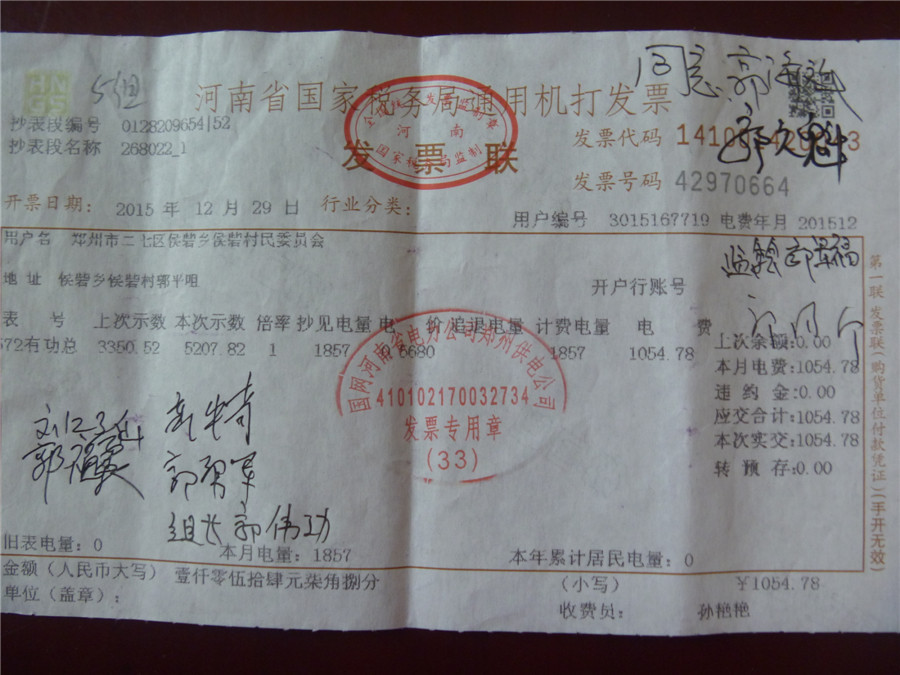 HNGS
5组
同意
河南省国家税务局通用机打发票
发票联
河南
国家税务局监制
抄表段编号 0128209654|52
抄表段名称 268022_1
发票代码
发票号码 42970664
开票日期: 2015 年 12 月 29 日 行业分类:
用户编号 3015167719 电费年月 201512
用户名 郑州市二七区侯砦乡侯砦村民委员会
地址 侯砦乡侯砦村郭平咀
开户行账号
表 号 上次示数 本次示数 倍率 抄见电量 电 价 追退电量 计费电量 电 费
572有功总 3350.52 5207.82 1 1857 0.5680 1857 1054.78
上次余额:0.00
本月电费:1054.78
违约金:0.00
应交合计:1054.78
本次实交:1054.78
转预存:0.00
国网河南省电力公司郑州供电公司
410102170032734
发票专用章
(33)
组长 郭伟功
旧表电量: 0
本月电量: 1857
本年累计居民电量: 0
金额（人民币大写） 壹仟零伍拾肆元柒角捌分
(小写) ¥1054.78
单位(盖章):
收费员: 孙艳艳
第一联 发票联(购货单位付款凭证)(手开无效)